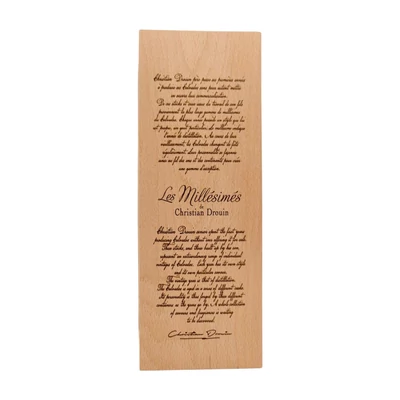 Christian Drouin père passa ses premières années
à produire des Calvados sans pour autant mettre
en oeuvre leur commercialisation.
De ce stock et ceux issus du travail de son fils
proviennent la plus large gamme de millésimes
du Calvados. Chaque année possède un style qui lui
est propre, un goût particulier, le millésime indique
l'année de distillation. Au cours de leur
vieillissement, les Calvados changent de fûts
régulièrement. Leur personnalité se façonne
au fil des ans et des
une gamme d'exception.
Les Millésimés
de
Christian Drouin
Christian Drouin senior spent the first years
producing Calvados without ever offering it for sale.
This stock, and those built up by his son,
represent an extraordinary range of
vintage of Calvados. Each year has its own style
and its own particular aroma.
The vintage year is that of distillation.
The Calvados is aged in a series of different casks.
Its personality is thus forged by these different
containers as the years go by. A whole collection
of aromas and fragrances is waiting
to be discovered.
Christian Drouin